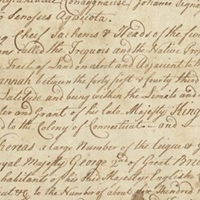 by Sanosses Agwiota.
ing Chief Sachems & Heads of the five
ons called the Iroquois and the Native Propr
Tracts of Land situate and Adjacent to
hannah between the forty first & fourty third
Latitude and being within the Limits and
ter and Grant of his late Majesty King
to the Colony of Connecticut and
hereas a large Number of the
oyal Majesty George 2d of Great Brit
habitants of his said Majestys English
to the Number of about five Hundred